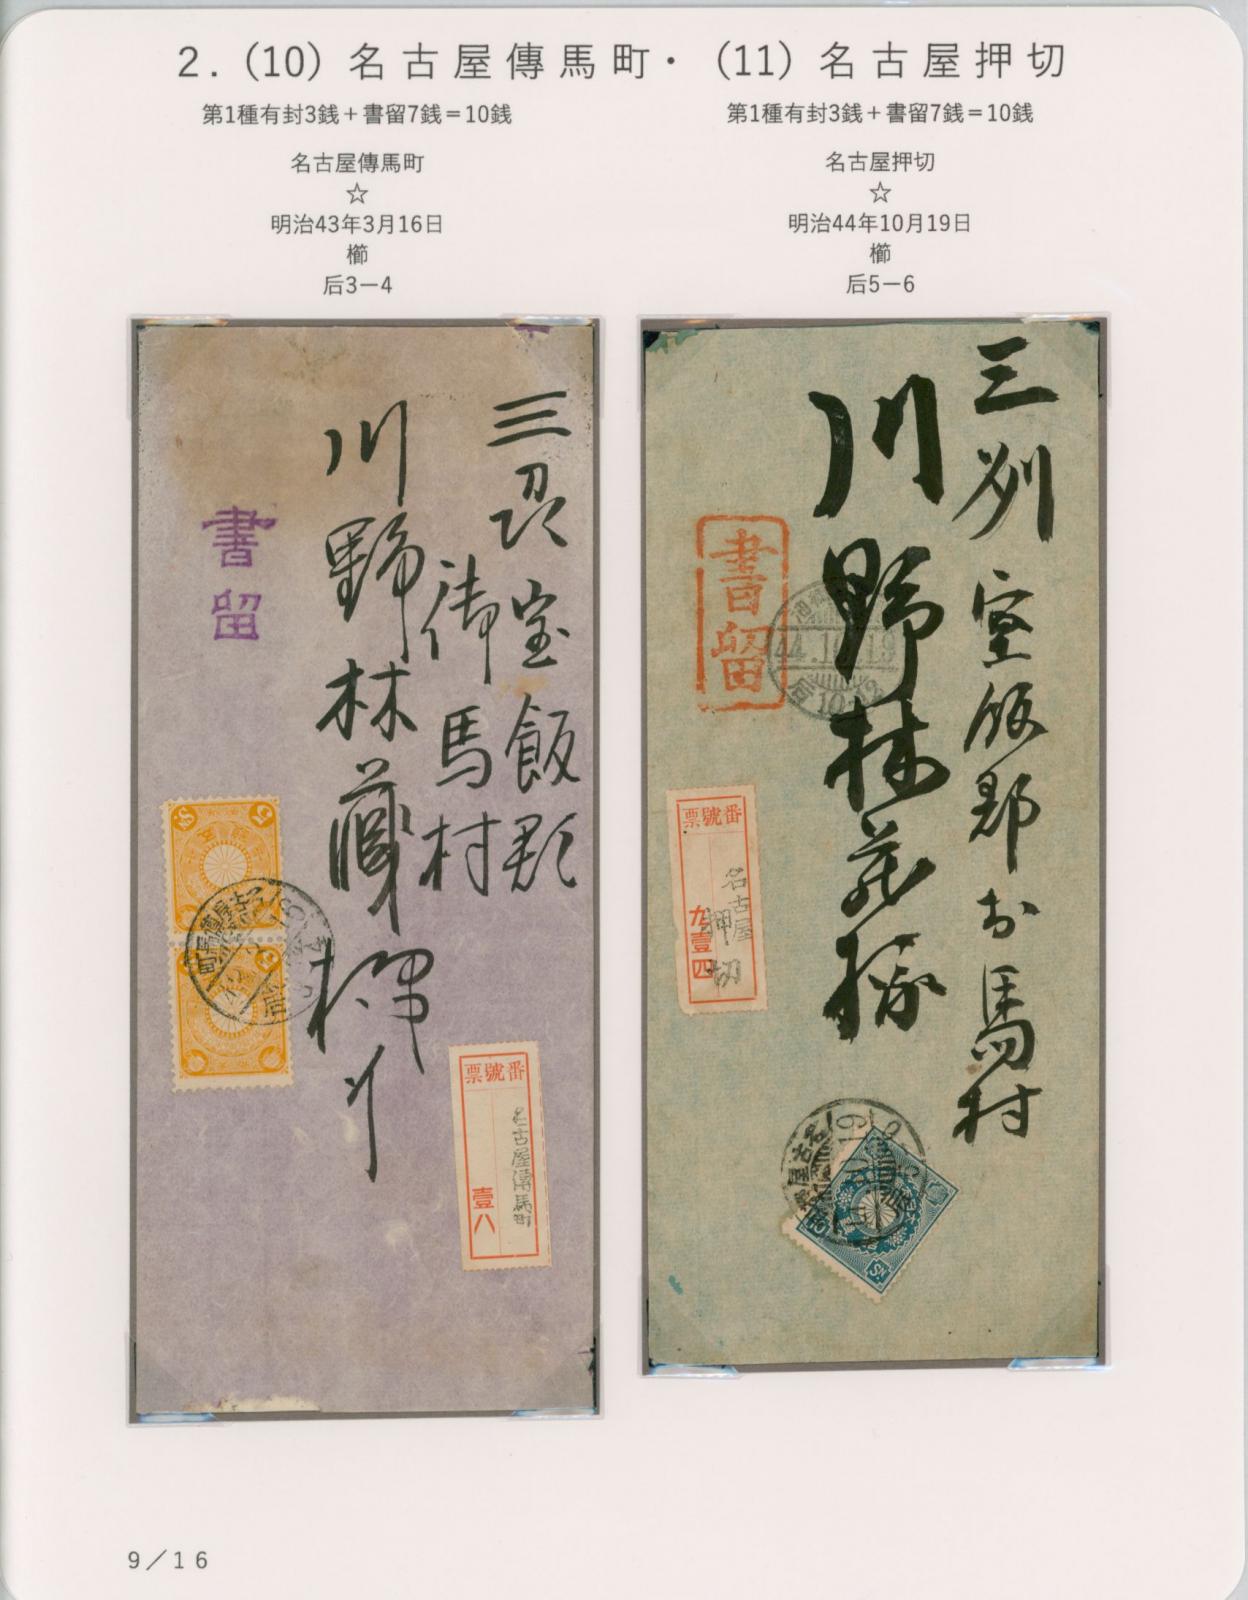 2.(10)名古屋傳馬町・(11)名古屋押切
第1種有封3銭+書留7銭=10銭
名古屋傳馬町
☆
明治43年3月16日
櫛
后3ー4
第1種有封3銭+書留7銭=10銭
名古屋押切
☆
明治44年10月19日
櫛
后5ー6
三河宝飯郡
御馬村
川野林蔵様
書留
票號番
名古屋傳馬町
壹八
三州宝飯郡お馬村
川野林蔵様
書留
44.10.19
票號番
名古屋
押切
九壹四
9/16